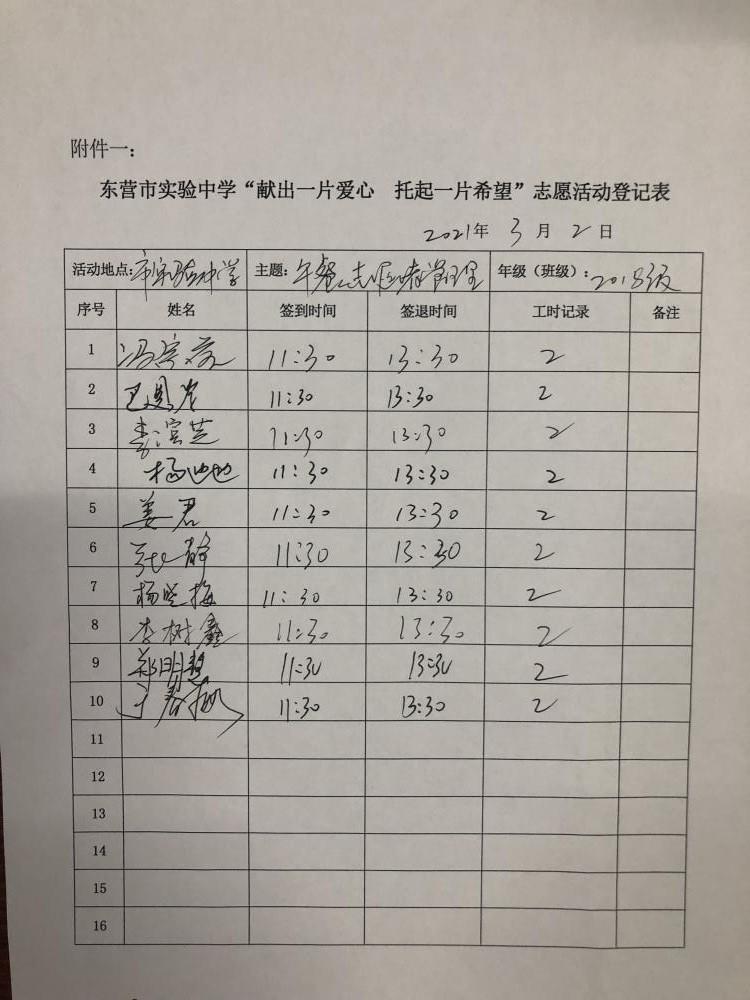 附件一：
东营市实验中学“献出一片爱心　托起一片希望”志愿活动登记表
2021年 3 月 2 日
活动地点：市实验中学 主题：午餐志愿 管理 年级（班级）：2018级
序号 姓名 签到时间 签退时间 工时记录 备注
1 冯 11:30 13:30 2
2 11:30 13:30 2
3 李滨芝 11:30 13:30 2
4 杨 11:30 13:30 2
5 姜君 11:30 13:30 2
6 张静 11:30 13:30 2
7 杨晓梅 11:30 13:30 2
8 李树鑫 11:30 13:30 2
9 郑明慧 11:30 13:30 2
10 11:30 13:30 2
11
12
13
14
15
16